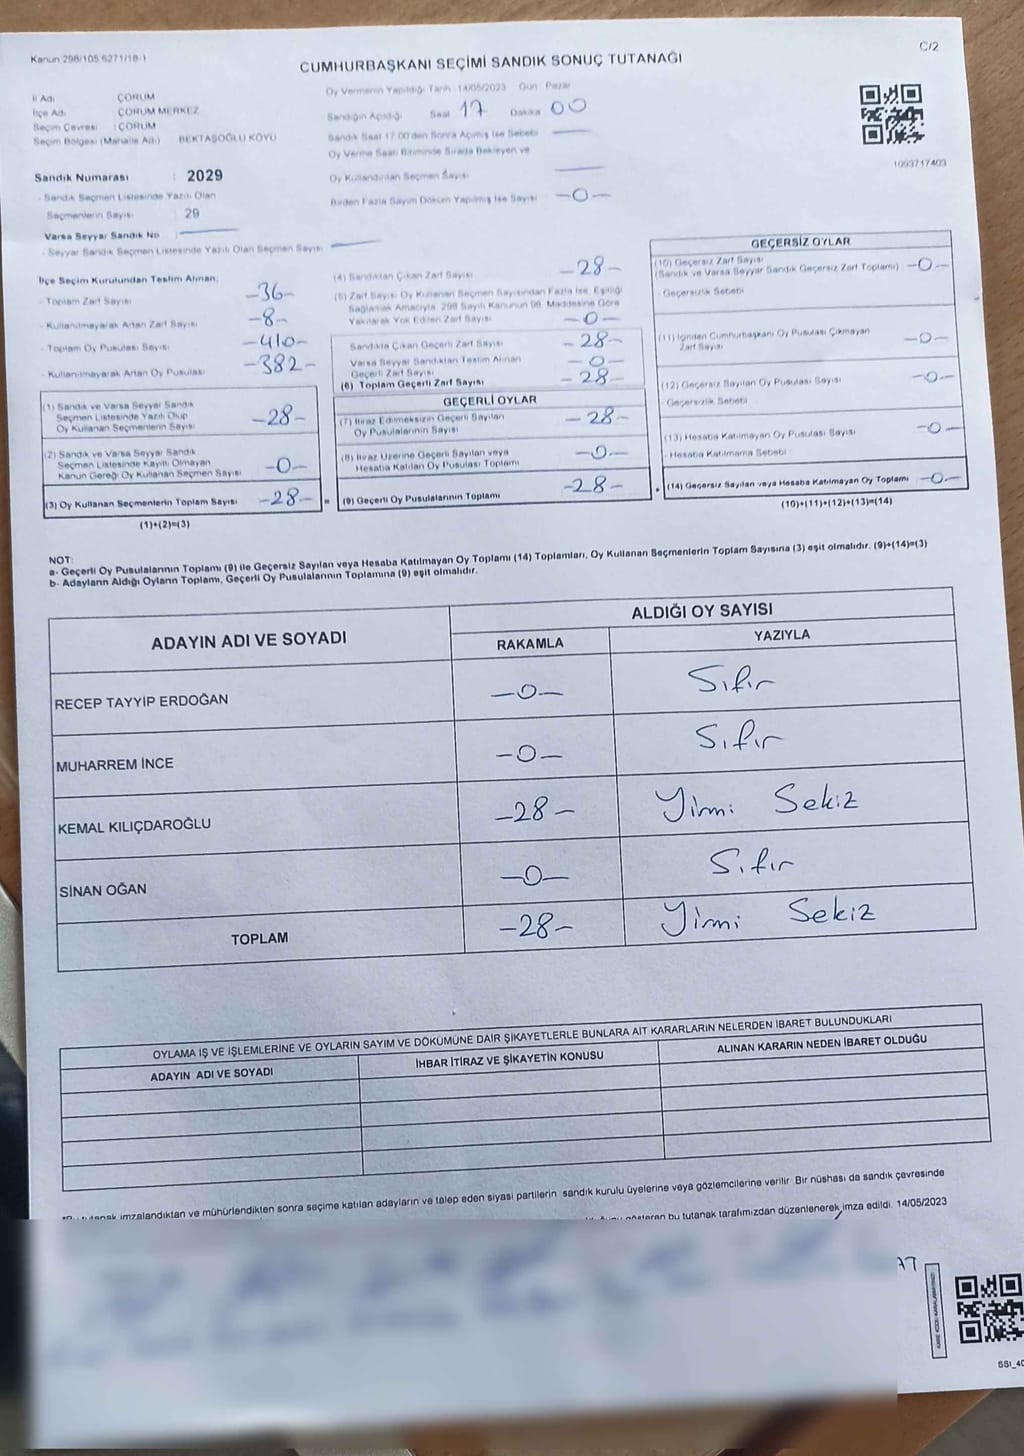 Kanun 298/105 6271/18-1
C/2
CUMHURBAŞKANI SEÇİMİ SANDIK SONUÇ TUTANAĞI
İl Adı : ÇORUM
İlçe Adı : ÇORUM MERKEZ
Seçim Çevresi : ÇORUM
Seçim Bölgesi (Mahalle Adı) BEKTAŞOĞLU KÖYÜ
Sandık Numarası : 2029
- Sandık Seçmen Listesinde Yazılı Olan
Seçmenlerin Sayısı : 29
Varsa Seyyar Sandık No
- Seyyar Sandık Seçmen Listesinde Yazılı Olan Seçmen Sayısı
Oy Vermenin Yapıldığı Tarih 14/05/2023 Gün : Pazar
Sandığın Açıldığı Saat 17 Dakika 00
Sandık Saat 17.00'den Sonra Açılmış İse Sebebi
Oy Verme Saati Bitiminde Sırada Bekleyen ve
Oy Kullandırılan Seçmen Sayısı
Birden Fazla Sayım Döküm Yapılmış İse Sayısı -0-
1093717403
İlçe Seçim Kurulundan Teslim Alınan;
- Toplam Zarf Sayısı -36-
- Kullanılmayarak Artan Zarf Sayısı -8-
- Toplam Oy Pusulası Sayısı -410-
- Kullanılmayarak Artan Oy Pusulası -382-
(1) Sandık ve Varsa Seyyar Sandık
Seçmen Listesinde Yazılı Olup
Oy Kullanan Seçmenlerin Sayısı -28-
(2) Sandık ve Varsa Seyyar Sandık
Seçmen Listesinde Kayıtlı Olmayan
Kanun Gereği Oy Kullanan Seçmen Sayısı -0-
(3) Oy Kullanan Seçmenlerin Toplam Sayısı -28- =
(1)+(2)=(3)
(4) Sandıktan Çıkan Zarf Sayısı -28-
(5) Zarf Sayısı Oy Kullanan Seçmen Sayısından Fazla İse, Eşitliği
Sağlamak Amacıyla 298 Sayılı Kanunun 98. Maddesine Göre
Yakılarak Yok Edilen Zarf Sayısı -0-
Sandıkta Çıkan Geçerli Zarf Sayısı -28-
Varsa Seyyar Sandıktan Teslim Alınan
Geçerli Zarf Sayısı -0-
(6) Toplam Geçerli Zarf Sayısı -28-
GEÇERLİ OYLAR
(7) İtiraz Edilmeksizin Geçerli Sayılan
Oy Pusulalarının Sayısı -28-
(8) İtiraz Üzerine Geçerli Sayılan veya
Hesaba Katılan Oy Pusulası Toplamı -0-
(9) Geçerli Oy Pusulalarının Toplamı -28- +
GEÇERSİZ OYLAR
(10) Geçersiz Zarf Sayısı
(Sandık ve Varsa Seyyar Sandık Geçersiz Zarf Toplamı) -0-
- Geçersizlik Sebebi
(11) İçinden Cumhurbaşkanı Oy Pusulası Çıkmayan
Zarf Sayısı -0-
(12) Geçersiz Sayılan Oy Pusulası Sayısı -0-
- Geçersizlik Sebebi
(13) Hesaba Katılmayan Oy Pusulası Sayısı -0-
- Hesaba Katılmama Sebebi
(14) Geçersiz Sayılan veya Hesaba Katılmayan Oy Toplamı -0-
(10)+(11)+(12)+(13)=(14)
NOT:
a- Geçerli Oy Pusulalarının Toplamı (9) ile Geçersiz Sayılan veya Hesaba Katılmayan Oy Toplamı (14) Toplamları, Oy Kullanan Seçmenlerin Toplam Sayısına (3) eşit olmalıdır. (9)+(14)=(3)
b- Adayların Aldığı Oyların Toplamı, Geçerli Oy Pusulalarının Toplamına (9) eşit olmalıdır.
ADAYIN ADI VE SOYADI
ALDIĞI OY SAYISI
RAKAMLA YAZIYLA
RECEP TAYYİP ERDOĞAN -0- Sıfır
MUHARREM İNCE -0- Sıfır
KEMAL KILIÇDAROĞLU -28- Yirmi Sekiz
SİNAN OĞAN -0- Sıfır
TOPLAM -28- Yirmi Sekiz
OYLAMA İŞ VE İŞLEMLERİNE VE OYLARIN SAYIM VE DÖKÜMÜNE DAİR ŞİKAYETLERLE BUNLARA AİT KARARLARIN NELERDEN İBARET BULUNDUKLARI
ADAYIN ADI VE SOYADI İHBAR İTİRAZ VE ŞİKAYETİN KONUSU ALINAN KARARIN NEDEN İBARET OLDUĞU
tutanak imzalandıktan ve mühürlendikten sonra seçime katılan adayların ve talep eden siyasi partilerin sandık kurulu üyelerine veya gözlemcilerine verilir. Bir nüshası da sandık çevresinde
gösteren bu tutanak tarafımızdan düzenlenerek imza edildi. 14/05/2023